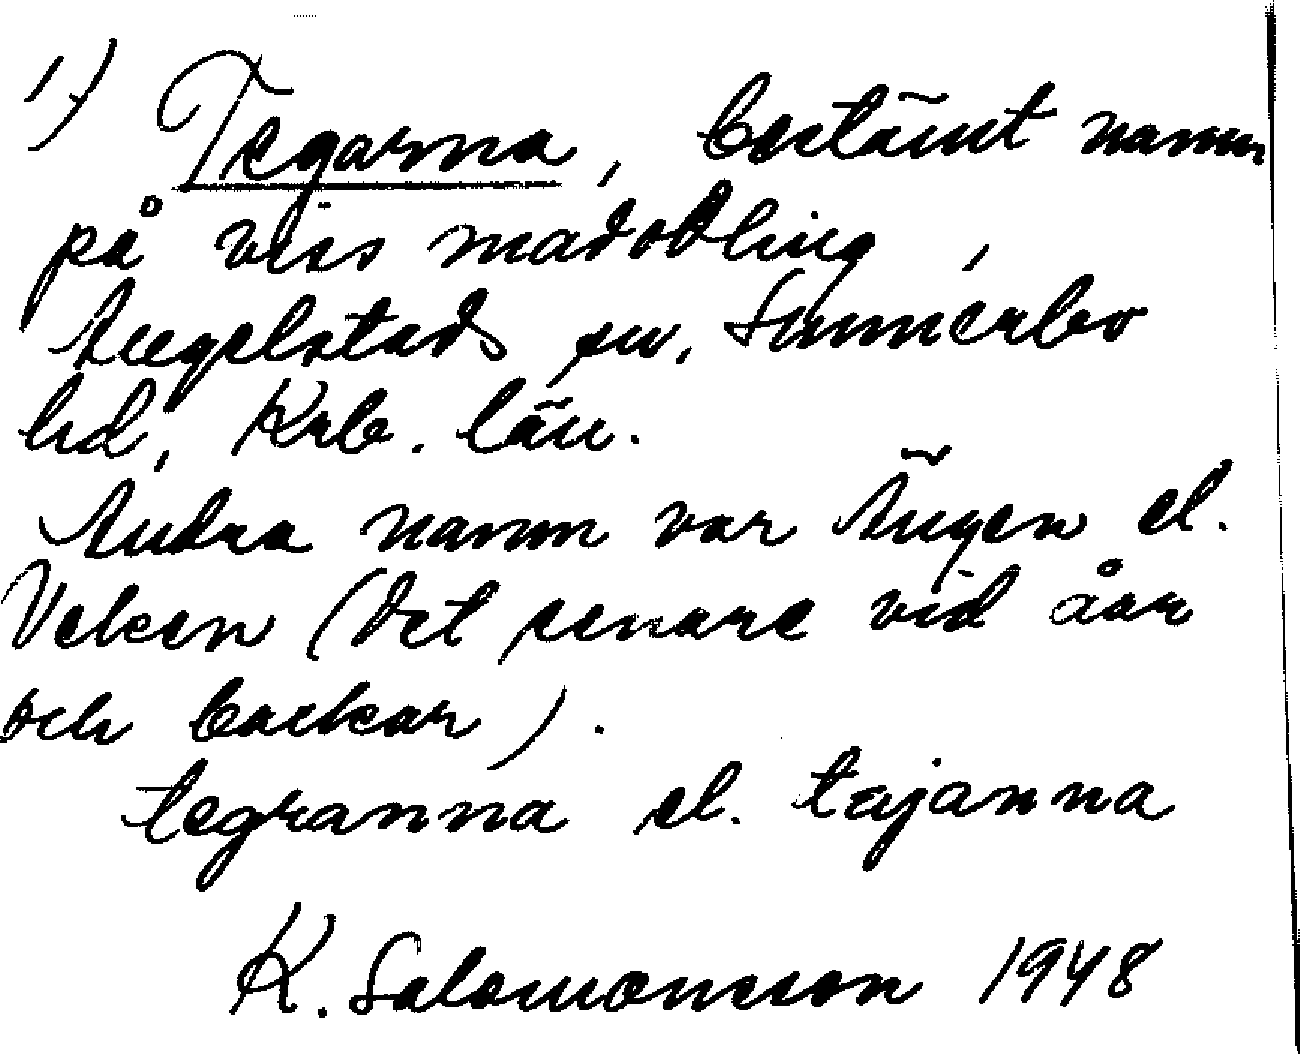 1) Tegarna, bestämt namn
på viss madodling,
Angelstads sn, Sunnerbo
hd, Krb. län.
Andra namn var Ängen el.
Veken (det senare vid åar
och backar).
tegranna el. tajanna
K. Salomonsson 1948